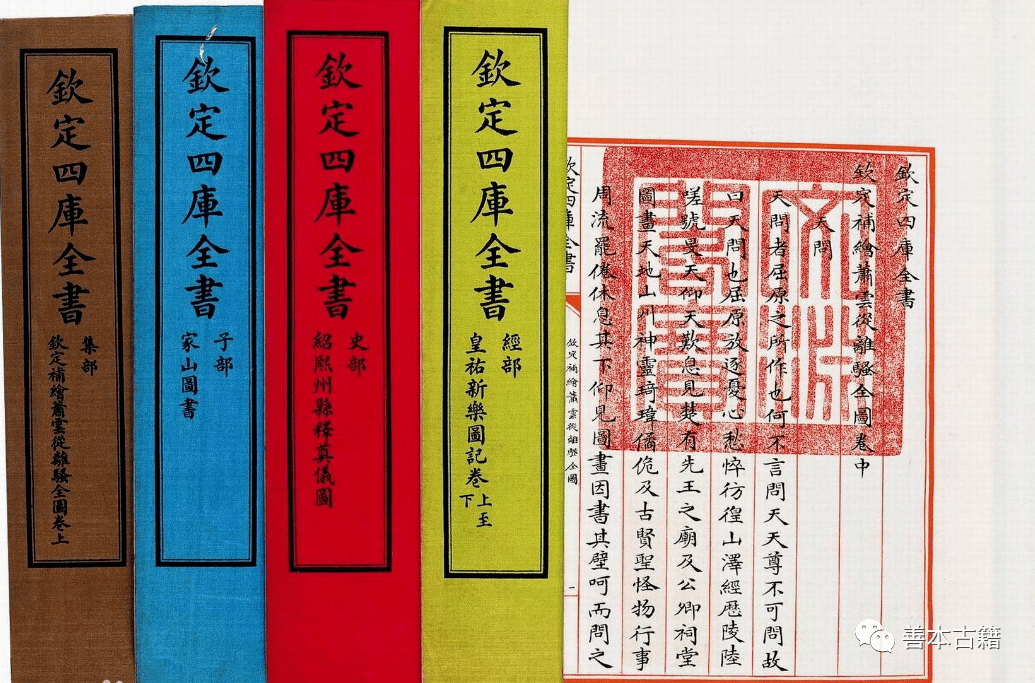 欽定四庫全書
集部
欽定補繪蕭雲從離騷全圖卷上
欽定四庫全書
子部
家山圖書
欽定四庫全書
史部
紹熙州縣釋奠儀圖
欽定四庫全書
經部
皇祐新樂圖記卷上至下
欽定四庫全書
欽定補繪蕭雲從離騷全圖卷中
天問
天問者屈原之所作也何不言問天天尊不可問故
曰天問也屈原放逐憂心愁悴彷徨山澤經歷陵陸
嗟號旻天仰天歎息見楚有先王之廟及公卿祠堂
圖畫天地山川神靈琦瑋僪佹及古賢聖怪物行事
周流罷倦休息其下仰見圖畫因書其壁呵而問之
欽定四庫全書
欽定補繪蕭雲從離騷全圖
一
文淵閣寶
善本古籍